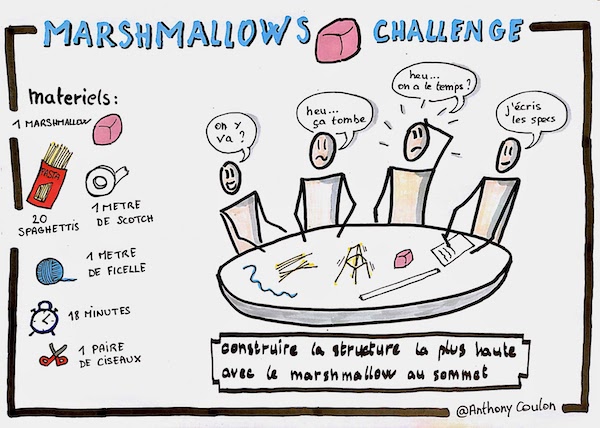 MARSHMALLOWS CHALLENGE
materiels:
1 MARSHMALLOW
PASTA
20
SPAGHETTIS
1 METRE
DE SCOTCH
1 METRE
DE FICELLE
18 MINUTES
1 PAIRE
DE CISEAUX
on y
va ?
heu...
ça tombe
heu...
on a le temps ?
j'écris
les specs
construire la structure la plus haute
avec le marshmallow au sommet
@Anthony Coulon